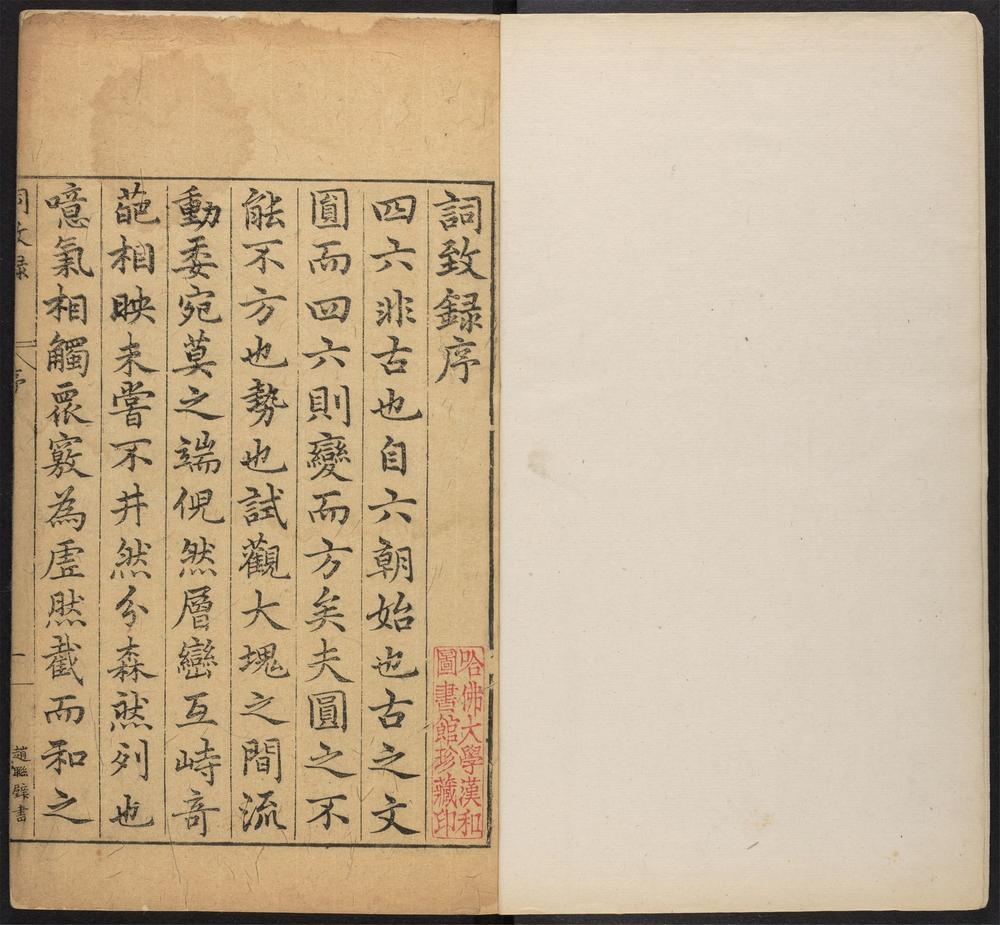 詞致録序
四六非古也自六朝始也古之文
圓而四六則變而方矣夫圓之不
能不方也勢也試觀大塊之間流
動委宛莫之端倪然層巒互峙奇
葩相映未嘗不井然分森然列也
噫氣相觸衆竅為虗然截而和之
詞致録
序
一
趙聮璧書
哈佛大學漢和
圖書館珍藏印